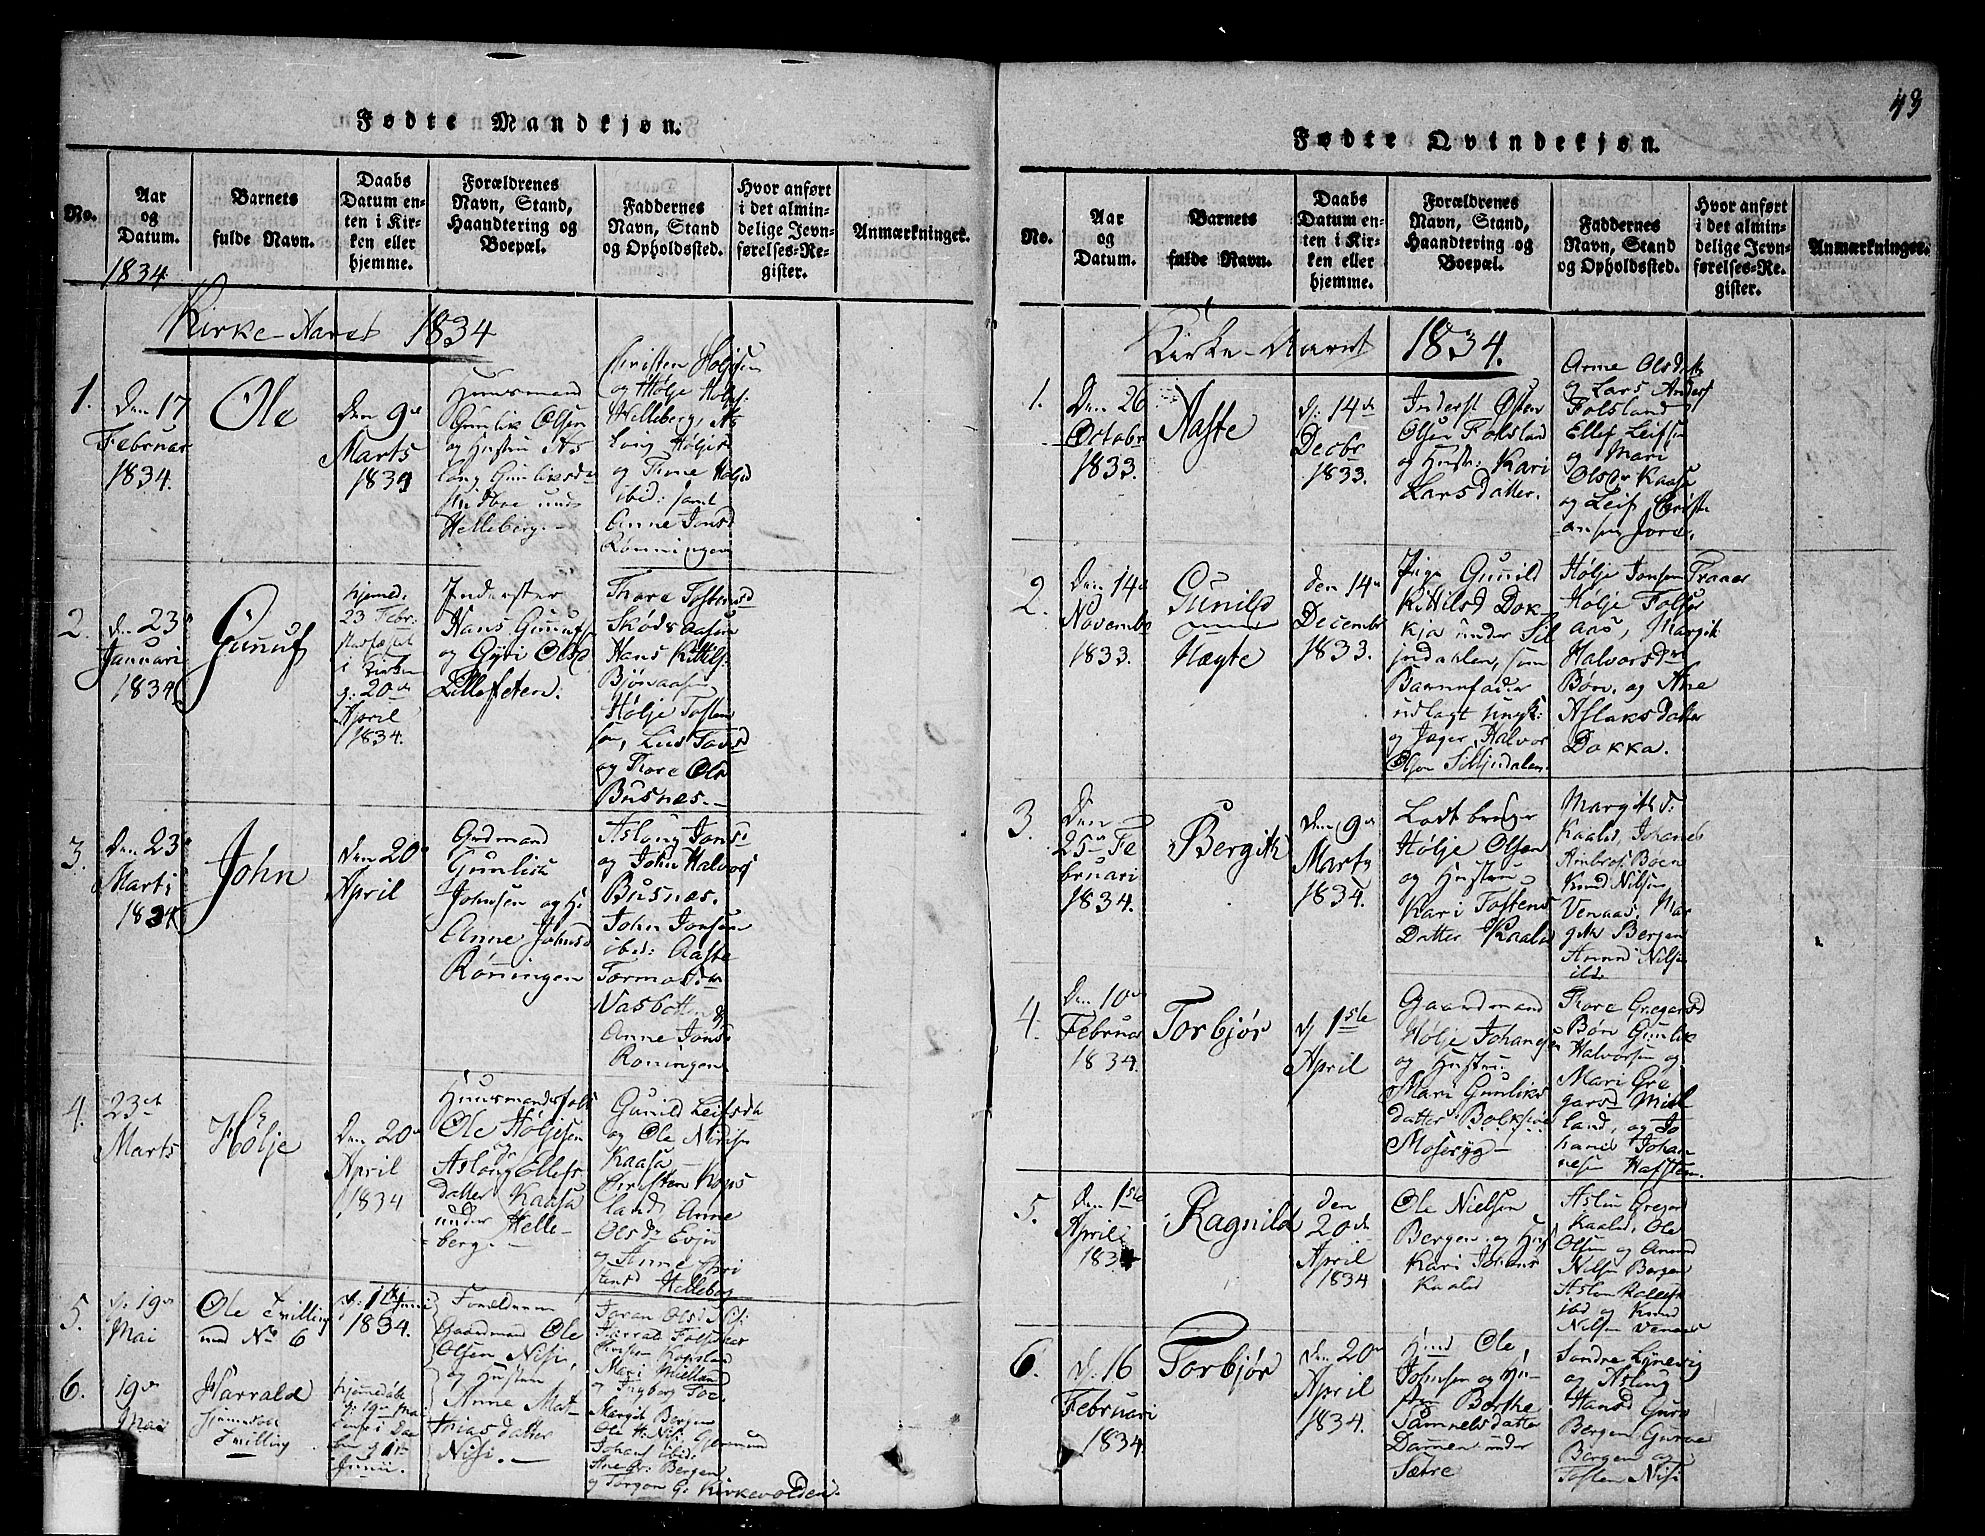 Fødte Mandkjøn.
No.
Aar
og
Datum.
Barnets
fulde Navn.
Daabs
Datum en-
ten i Kir-
ken eller
hjemme.
Forældrenes
Navn, Stand,
Haandtering og
Boepæl.
Faddernes
Navn, Stand
og Opholdssted.
Hvor anført
i det almin-
delige Jevn-
førelses-Re-
gister.
Anmærkninger.
1834
Kirke-Aaret 1834
1.
Den 17
Februar
1834.
Ole
den 9de
Marts
1834
Huusmand
Gunlik Olsen
og Hustru As
loug Gunliksd
under
Helleberg.
Christen Høljesen
og Hølje Holjes:
Helleberg, As
loug Høljesd
og Anne Høljesd
ibid: samt
Anne Jonsd
Rønningen
2.
den 23
Januari
1834
Gunuf
hjemed:
23 Febr:
i Kirken
d: 20de
April
1834.
Inderster
Hans Gunuf
og Gyri Olsd
Lillefeten.
Thore Tostensd
Skødsaasen
Hans Kittils:
Bjørnaasen
Hølje Tosten
sen,
og Thore Ols
Busnes.
3.
Den 23
Marts
1834
John
den 20
April
Gunlik
Johnsen og H:
Anne Johnsd
Rønningen
Asloug Jonsd
og John Halvors
Busnes.
John Jonsen
ibid: Aaste
Tormodsdr
Vasbotten &
Anne Jonsd
Roningen
4.
23de
Marts
Hølje
Den 20
April
1834
Huusmandsfolk
Ole Høljesen
og
Asloug Ellefs
datter Kaasa
under Helle-
berg.
Gunild Leifsdtr
og Ole Nirisen
Kaasa
Christen Kops
land, Anne
Olsdr Evju
og Anne Chri
stensd Helleberg
5.
d: 19de
Mai
Ole Tvilling
med No 6
d: 1ste Junii
1834.
Forældrene
Gaardmand Ole
Olsen Nisi,
og Hustru
Anne Mat-
thiasdatter
Nisi.
6.
19de
Mai
Harrald
hjemmedøbt
Tvilling
hjemmedøbt
d: 19de Mai
Junii.
Mari Mieland
og Ingborg
Margit Bergen
Ole H. Nisi
Johans ibid:
Ane Bergen
og Torgon G. Kirkevolden.
43
Fødte Qvindekjøn.
No.
Aar
og
Datum.
Barnets
fulde Navn.
Daabs
Datum en-
ten i Kir-
ken eller
hjemme.
Forældrenes
Navn, Stand,
Haandtering og
Boepæl.
Faddernes
Navn, Stand
og Opholdssted.
Hvor anført
i det almin-
delige Jevn-
førelses-Re-
gister.
Anmærkninger.
Kirke-Aaret 1834.
1.
Den 26
Octobr
1833.
Aaste
d: 14de
Decbr
1833.
Inderst Østen
Olsen Folsland
og Hustr: Kari
Larsdatter.
Anne Olsdatter
og Lars Anders
Folsland
Ellef Leifsen
og Mari
Olsdr Kaasa
og Leif Christi
ansen Jore.
2.
Den 14de
Novembr
1833.
Gunild
Hægte
den 14de
Decembr
1833.
Pige Gunild
Kittilsd Dok-
kja under Sil
judalen, som
Barnefader
udlagt Ungk:
og Jæger Halvor
Olsen Siljudalen.
Hølje Jonsen Traaer
Hølje Folser
aas, Margit
Halvorsdr
Børn, og Ane
Aslaksdatter
Dokka.
3.
Den
25de Fe
bruari
1834.
Bergith
den 9de
Marts
1834.
Lodtbruger
Hølje Olsen
og Hustru
Kari Tostens
Datter Kaalid
Margith
Kaalid, Johanes
Ambros: Boen
Knud Nilsen
Venaas, Mar
git Bergen
Amund Nilsen
ibid
4.
Den 10de
Februar
1834.
Torbjør
d. 1ste
April
Gaardmand
Hølje Johanesen
og Hustru
Mari Gunliks
datter Bolksjoe
Moserye
Thore Gregersd
Børn Gunlik
Halvorsen og
Mari Gre
garsd Miel
land, og Jo
hanes Johan
nesen Hafsten
5.
Den 1ste
April
1834
Ragnild
den
20de
April
1834
Ole Nielsen
Bergen, og Hust
Kari Johans
Kaalid
Aslou Gregar
Kaalid, Ole
Olsen og Amund
Nilsen Bergen
Aslou
ibid og Knud
Nilsen Venaas
6.
d. 16
Februari
1834
Torbjør
den 20de
April
1834.
Huusd Ole
Johnsen og Hu-
stru Berthe
Samuelsdatter
Dammen under
Sætre
Sondre Lynevig
og Asloug
Hansd Gurs
Bergen Gurine
Bergen og
Tosten Nisi